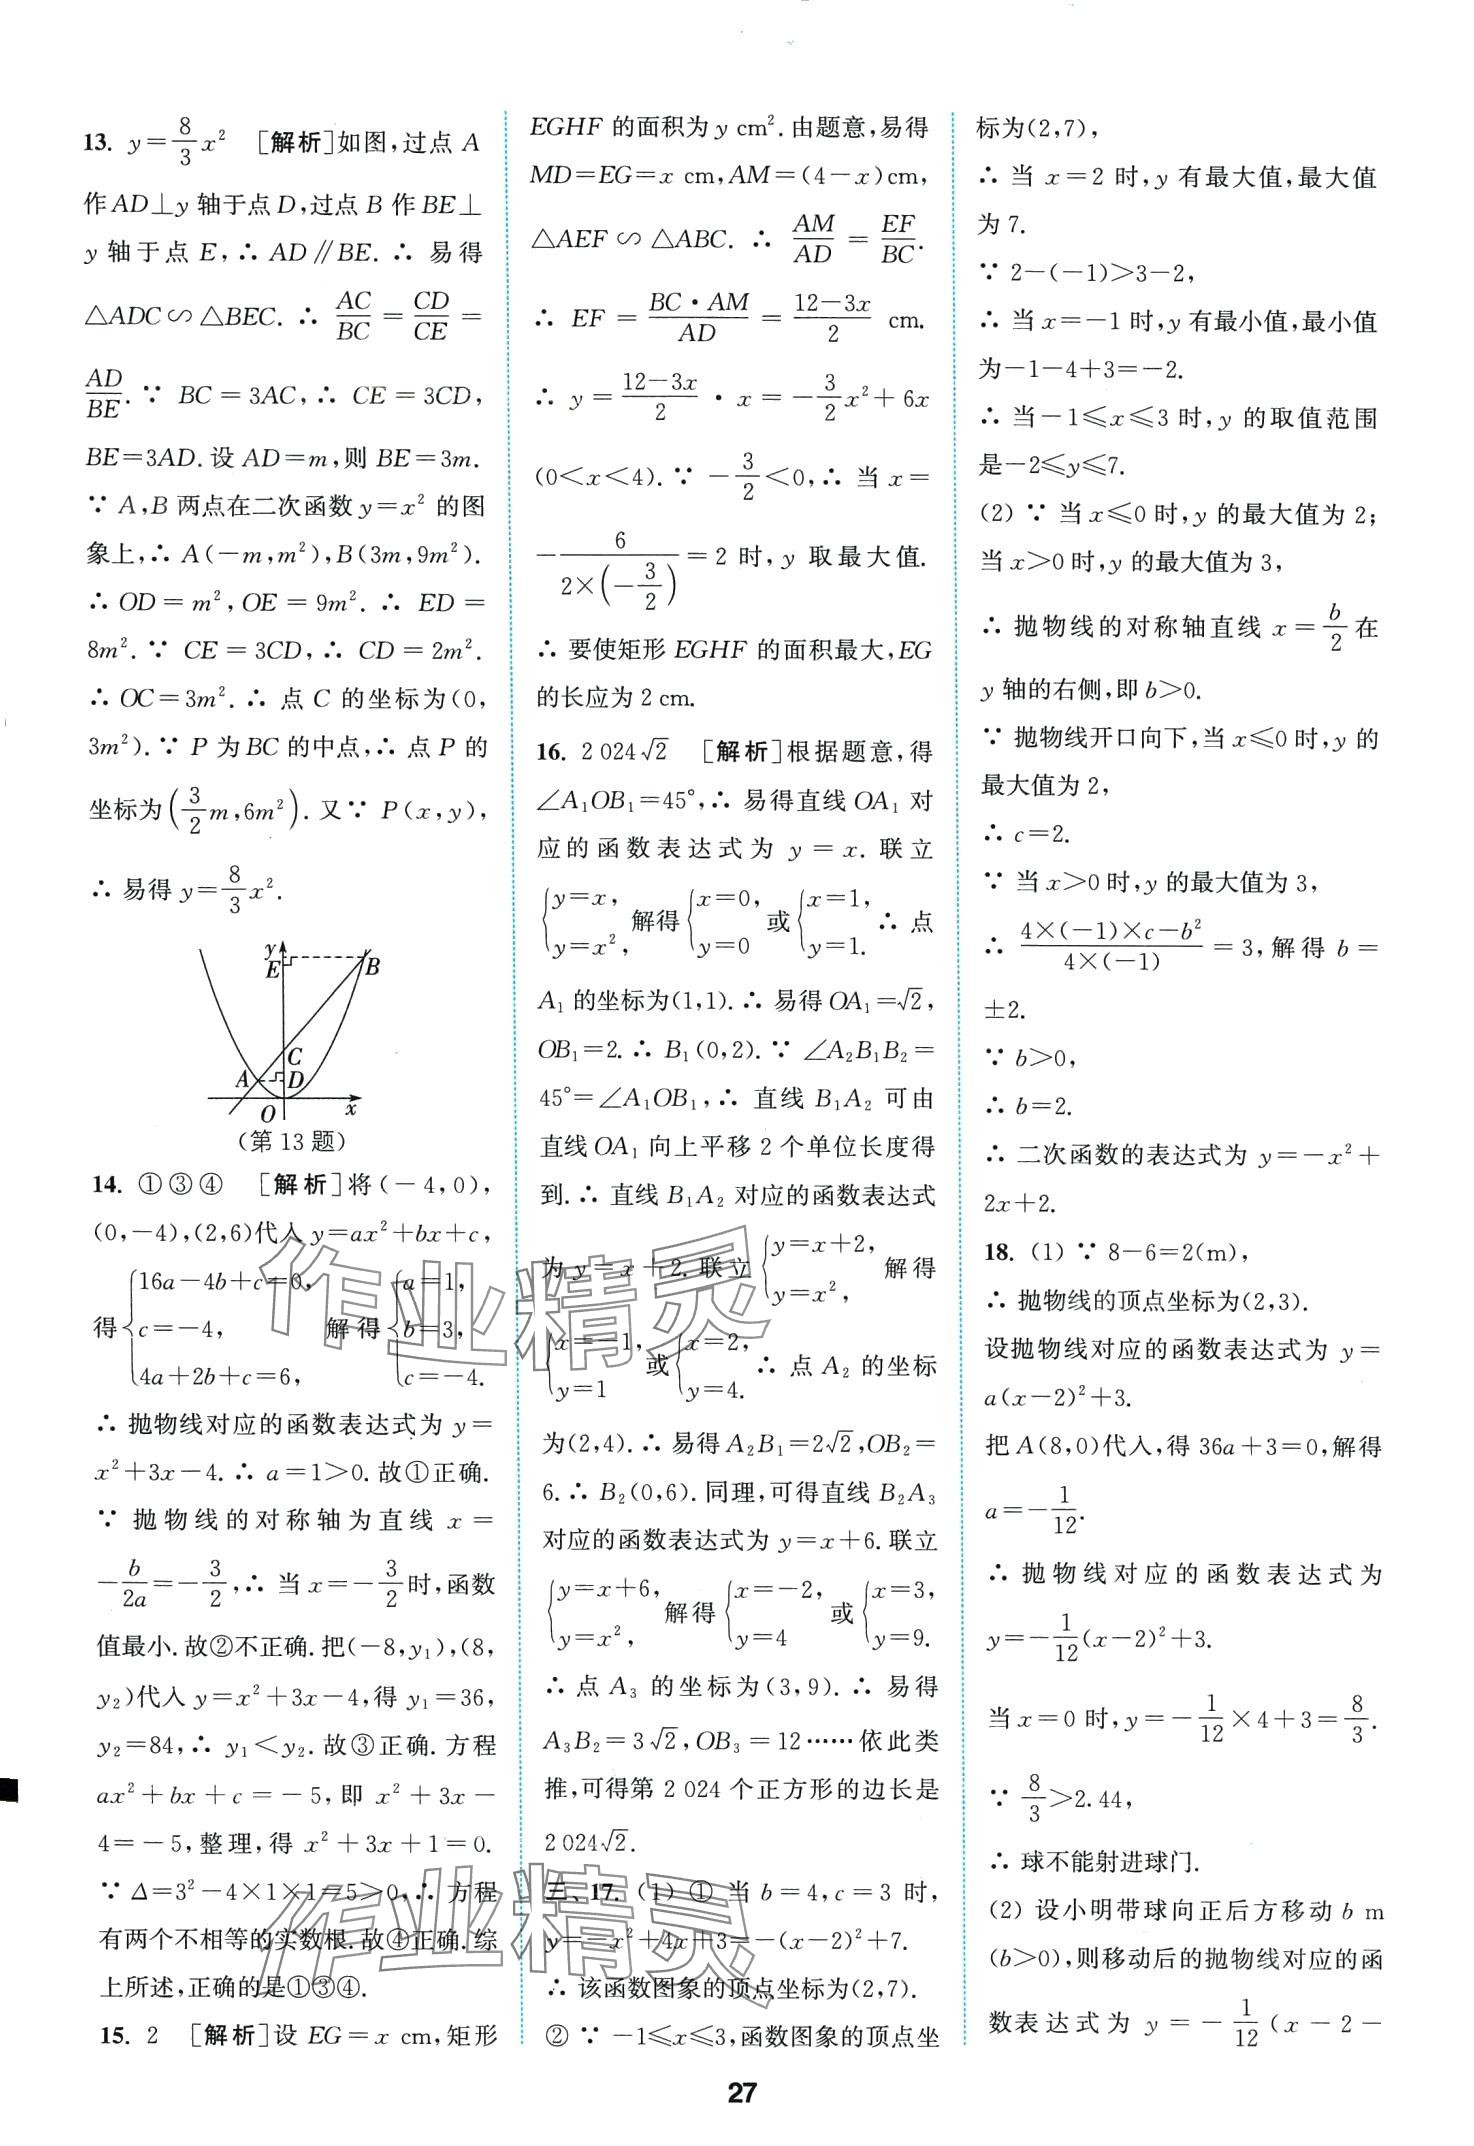 13. y=8/3 x² [解析]如图,过点 A
作AD⊥y 轴于点 D,过点 B 作BE⊥
y 轴于点 E,∴ AD∥BE. ∴ 易得
△ADC∽△BEC. ∴ AC/BC = CD/CE =
AD/BE. ∵ BC=3AC,∴ CE=3CD,
BE=3AD. 设 AD=m,则 BE=3m.
∵ A,B 两点在二次函数 y=x² 的图
象上,∴ A(-m,m²),B(3m,9m²).
∴ OD=m²,OE=9m². ∴ ED=
8m². ∵ CE=3CD,∴ CD=2m².
∴ OC=3m². ∴ 点 C 的坐标为(0,
3m²). ∵ P 为BC 的中点,∴ 点 P 的
坐标为(3/2 m,6m²). 又∵ P(x,y),
∴ 易得 y=8/3 x².
y
E
B
C
A
D
O
x
(第 13 题)
14. ①③④ [解析]将(-4,0),
(0,-4),(2,6)代入 y=ax²+bx+c,
得{16a-4b+c=0, c=-4, 4a+2b+c=6, 解得{a=1, b=3, c=-4.
∴ 抛物线对应的函数表达式为 y=
x²+3x-4. ∴ a=1>0. 故①正确.
∵ 抛物线的对称轴为直线 x=
-b/2a=-3/2,∴ 当 x=-3/2时,函数
值最小. 故②不正确. 把(-8,y₁),(8,
y₂)代入 y=x²+3x-4,得 y₁=36,
y₂=84,∴ y₁<y₂. 故③正确. 方程
ax²+bx+c=-5,即 x²+3x-
4=-5,整理,得 x²+3x+1=0.
∵ Δ=3²-4×1×1=5>0,∴ 方程
有两个不相等的实数根. 故④正确. 综
上所述,正确的是①③④.
15. 2 [解析]设 EG=x cm,矩形
EGHF 的面积为 y cm². 由题意,易得
MD=EG=x cm,AM=(4-x)cm,
△AEF∽△ABC. ∴ AM/AD = EF/BC.
∴ EF=BC·AM/AD=12-3x/2 cm.
∴ y=12-3x/2·x=-3/2x²+6x
(0<x<4). ∵ -3/2<0,∴ 当 x=
-6/2×(-3/2)=2 时,y 取最大值.
∴ 要使矩形 EGHF 的面积最大,EG
的长应为 2 cm.
16. 2 024√2 [解析]根据题意,得
∠A₁OB₁=45°,∴ 易得直线 OA₁ 对
应的函数表达式为 y=x. 联立
{y=x, y=x², 解得{x=0, y=0 或{x=1, y=1. ∴ 点
A₁ 的坐标为(1,1). ∴ 易得 OA₁=√2,
OB₁=2. ∴ B₁(0,2). ∵ ∠A₂B₁B₂=
45°=∠A₁OB₁,∴ 直线 B₁A₂ 可由
直线 OA₁ 向上平移 2 个单位长度得
到. ∴ 直线 B₁A₂ 对应的函数表达式
为 y=x+2. 联立{y=x+2, y=x², 解得
{x=-1, y=1 或{x=2, y=4. ∴ 点 A₂ 的坐标
为(2,4). ∴ 易得 A₂B₁=2√2,OB₂=
6. ∴ B₂(0,6). 同理,可得直线 B₂A₃
对应的函数表达式为 y=x+6. 联立
{y=x+6, y=x², 解得{x=-2, y=4 或{x=3, y=9.
∴ 点 A₃ 的坐标为(3,9). ∴ 易得
A₃B₂=3√2,OB₃=12……依此类
推,可得第 2 024 个正方形的边长是
2 024√2.
三、17. (1) ① 当 b=4,c=3 时,
y=-x²+4x+3=-(x-2)²+7.
∴ 该函数图象的顶点坐标为(2,7).
② ∵ -1≤x≤3,函数图象的顶点坐
标为(2,7),
∴ 当 x=2 时,y 有最大值,最大值
为 7.
∵ 2-(-1)>3-2,
∴ 当 x=-1 时,y 有最小值,最小值
为-1-4+3=-2.
∴ 当-1≤x≤3 时,y 的取值范围
是-2≤y≤7.
(2) ∵ 当 x≤0 时,y 的最大值为 2;
当 x>0 时,y 的最大值为 3,
∴ 抛物线的对称轴直线 x=b/2在
y 轴的右侧,即 b>0.
∵ 抛物线开口向下,当 x≤0 时,y 的
最大值为 2,
∴ c=2.
∵ 当 x>0 时,y 的最大值为 3,
∴ 4×(-1)×c-b²/4×(-1)=3,解得 b=
±2.
∵ b>0,
∴ b=2.
∴ 二次函数的表达式为 y=-x²+
2x+2.
18. (1) ∵ 8-6=2(m),
∴ 抛物线的顶点坐标为(2,3).
设抛物线对应的函数表达式为 y=
a(x-2)²+3.
把 A(8,0)代入,得 36a+3=0,解得
a=-1/12.
∴ 抛物线对应的函数表达式为
y=-1/12(x-2)²+3.
当 x=0 时,y=-1/12×4+3=8/3.
∵ 8/3>2.44,
∴ 球不能射进球门.
(2) 设小明带球向正后方移动 b m
(b>0),则移动后的抛物线对应的函
数表达式为 y=-1/12(x-2-
作业精灵
作业精灵
27